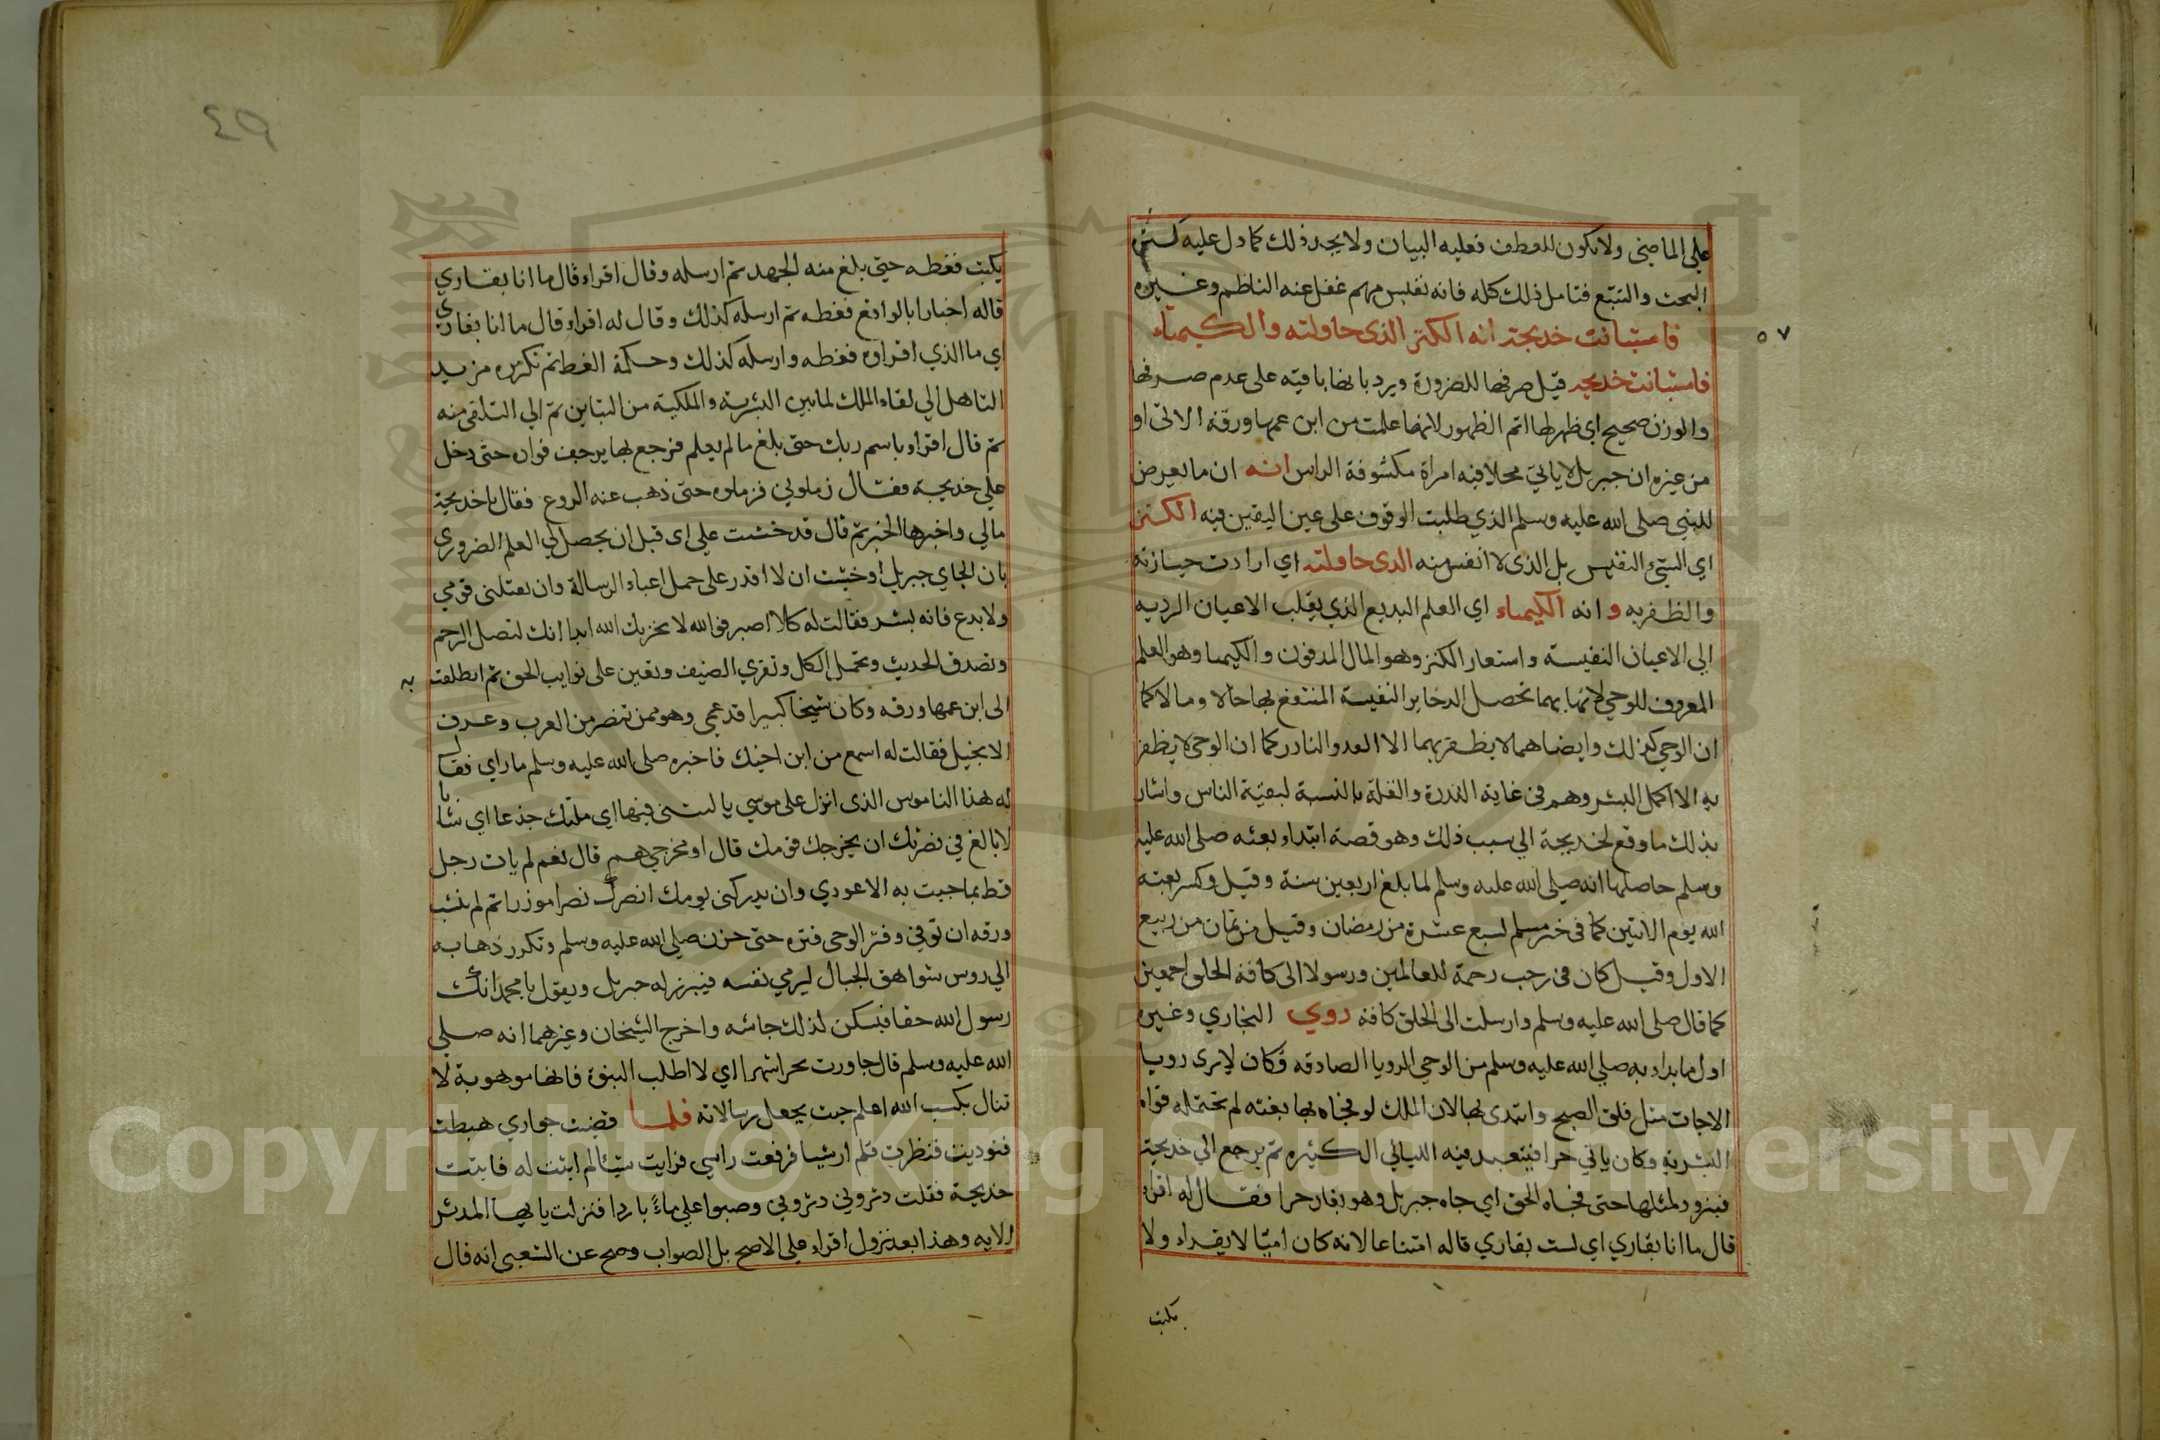 على الماضي ولا يكون للعطف فعليه البيان ولا يجد ذلك كما دل عليه
البحث والتتبع فتامل ذلك كله فانه نفيس مهم غفل عنه الناظم وغيره
فاستبانت خديجة انه الكنز الذى حاولته والكيمياء
٥٧
فاستبانت خديجه قيل صرفها للضرورة ويرد بانها باقيه على عدم صرفها
والوزن صحيح اي ظهر لها اتم الظهور لانها علمت من ابن عمها ورقة الاتي او
من غيره ان جبريل لا ياتي محلا فيه امراة مكشوفة الراس انه ان ما يعرض
للنبي صلى الله عليه وسلم الذي طلبت الوقوف على عين اليقين فيه الكنز
اي الشيء النفيس بل الذى لا انفس منه الذى حاولته اي ارادت حيازته
والظفر به و انه الكيمياء اي العلم البديع الذي يقلب الاعيان الرديه
الي الاعيان النفيسة واستعار الكنز وهو المال المدفون والكيميا وهو العلم
المعروف للوحي لانها بهما تحصل الدخاير النفيسة المنتفع بها حالا ومالا كما
ان الوحي كذلك وايضا هما لا يظفر بهما الا الفذ والنادر كما ان الوحي لا يظفر
به الا اكمل البشر وهم في غاية الندرة والقلة بالنسبة لبقية الناس واشار
بذلك ما وقع لخديجة الي سبب ذلك وهو قصة ابتداء بعثه صلى الله عليه
وسلم حاصلها انه صلى الله عليه وسلم لما بلغ اربعين سنة وقيل وكسر بعثه
الله يوم الاثنين كما في خبر مسلم لسبع عشرة من رمضان وقيل من ثمان من ربيع
الاول وقيل كان في رجب رحمة للعالمين ورسولا الى كافة الخلق اجمعين
كما قال صلى الله عليه وسلم وارسلت الى الخلق كافة روي البخاري وغيره
اول ما بداء به صلي الله عليه وسلم من الوحي الرويا الصادقه فكان لا يرى رويا
الا جات مثل فلق الصبح وابتدى بها لان الملك لو فجاه بها بغته لم تحتمله قواه
البشريه وكان ياتي حرا فيتعبد فيه الليالي الكثيره ثم يرجع الي خديجة
فيتزود لمثلها حتى فجاه الحق اي جاه جبريل وهو بغار حرا فقال له اقراء
قال ما انا بقاري اي لست بقاري قاله امتناعا لانه كان اميا لا يقراء ولا
يكتب
٤٩
يكتب فغطه حتي بلغ منه الجهد ثم ارسله وقال اقراء قال ما انا بقاري
قاله اخبارا بالواقع فغطه ثم ارسله كذلك وقال له اقراء قال ما انا بقاري
اي ما الذي اقراه فغطه وارسله كذلك وحكمة الغط ثم تكرره مزيد
التاهل الي لقاء الملك لما بين البشرية والملكية من التباين ثم الي التلقي منه
ثم قال اقراء باسم ربك حتى بلغ ما لم يعلم فرجع بها يرجف فواده حتى دخل
علي خديجة فقال زملوني فزملوه حتى ذهب عنه الروع فقال يا خديجة
مالي واخبرها الخبر ثم قال قد خشيت علي اى قبل ان يحصل لي العلم الضروري
بان الجاي جبريل او خشيت ان لا اقدر على حمل اعباء الرسالة وان يقتلني قومي
ولا بدع فانه بشر فقالت له كلا اصبر فوالله لا يخزيك الله ابدا انك لتصل الرحم
وتصدق الحديث وتحمل الكل وتقري الضيف وتعين على نوايب الحق ثم انطلقت به
الى ابن عمها ورقه وكان شيخا كبيرا قد عمي وهو ممن تنصر من العرب وعرف
الانجيل فقالت له اسمع من ابن اخيك فاخبره صلى الله عليه وسلم ما راي فقال
له هذا الناموس الذى انزل على موسي يا ليتني فيها اي ملتك جذعا اي شابا
لابالغ في نصرتك ان يخرجك قومك قال او مخرجي هم قال نعم لم يات رجل
قط بما جيت به الا عودي وان يدركني يومك انصرك نصرا موزرا ثم لم ينشب
ورقه ان توفي وفتر الوحي فتره حتى حزن صلي الله عليه وسلم وتكرر ذهابه
الي روس شواهق الجبال ليرمي نفسه فيبرز له جبريل ويقول يا محمد انك
رسول الله حقا فيسكن لذلك جاشه واخرج الشيخان وغيرهما انه صلى
الله عليه وسلم قال جاورت بحرا شهرا اي لا اطلب النبوة فانها موهوبة لا
تنال بكسب الله اعلم حيث يجعل رسالاته فلما قضيت جواري هبطت
فنوديت فنظرت فلم ار شيا فرفعت راسي فرايت شيئا لم اثبت له فاتيت
خديجة فقلت دثروني دثروني وصبوا علي ماءً باردا فنزلت يا ايها المدثر
الايه وهذا بعد نزول اقراء علي الاصح بل الصواب وصح عن الشعبي انه قال
Copyright © King Saud University